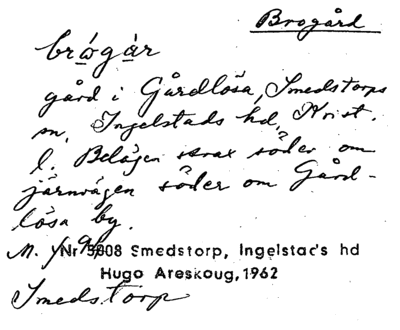 Brogård
brógàr
gård i Gårdlösa, Smedstorps
sn, Ingelstads hd, Krist.
l. Belägen strax söder om
järnvägen söder om Gård-
lösa by.
M. Nr 5008 Smedstorp, Ingelstad's hd
Hugo Areskoug, 1962
Smedstorp